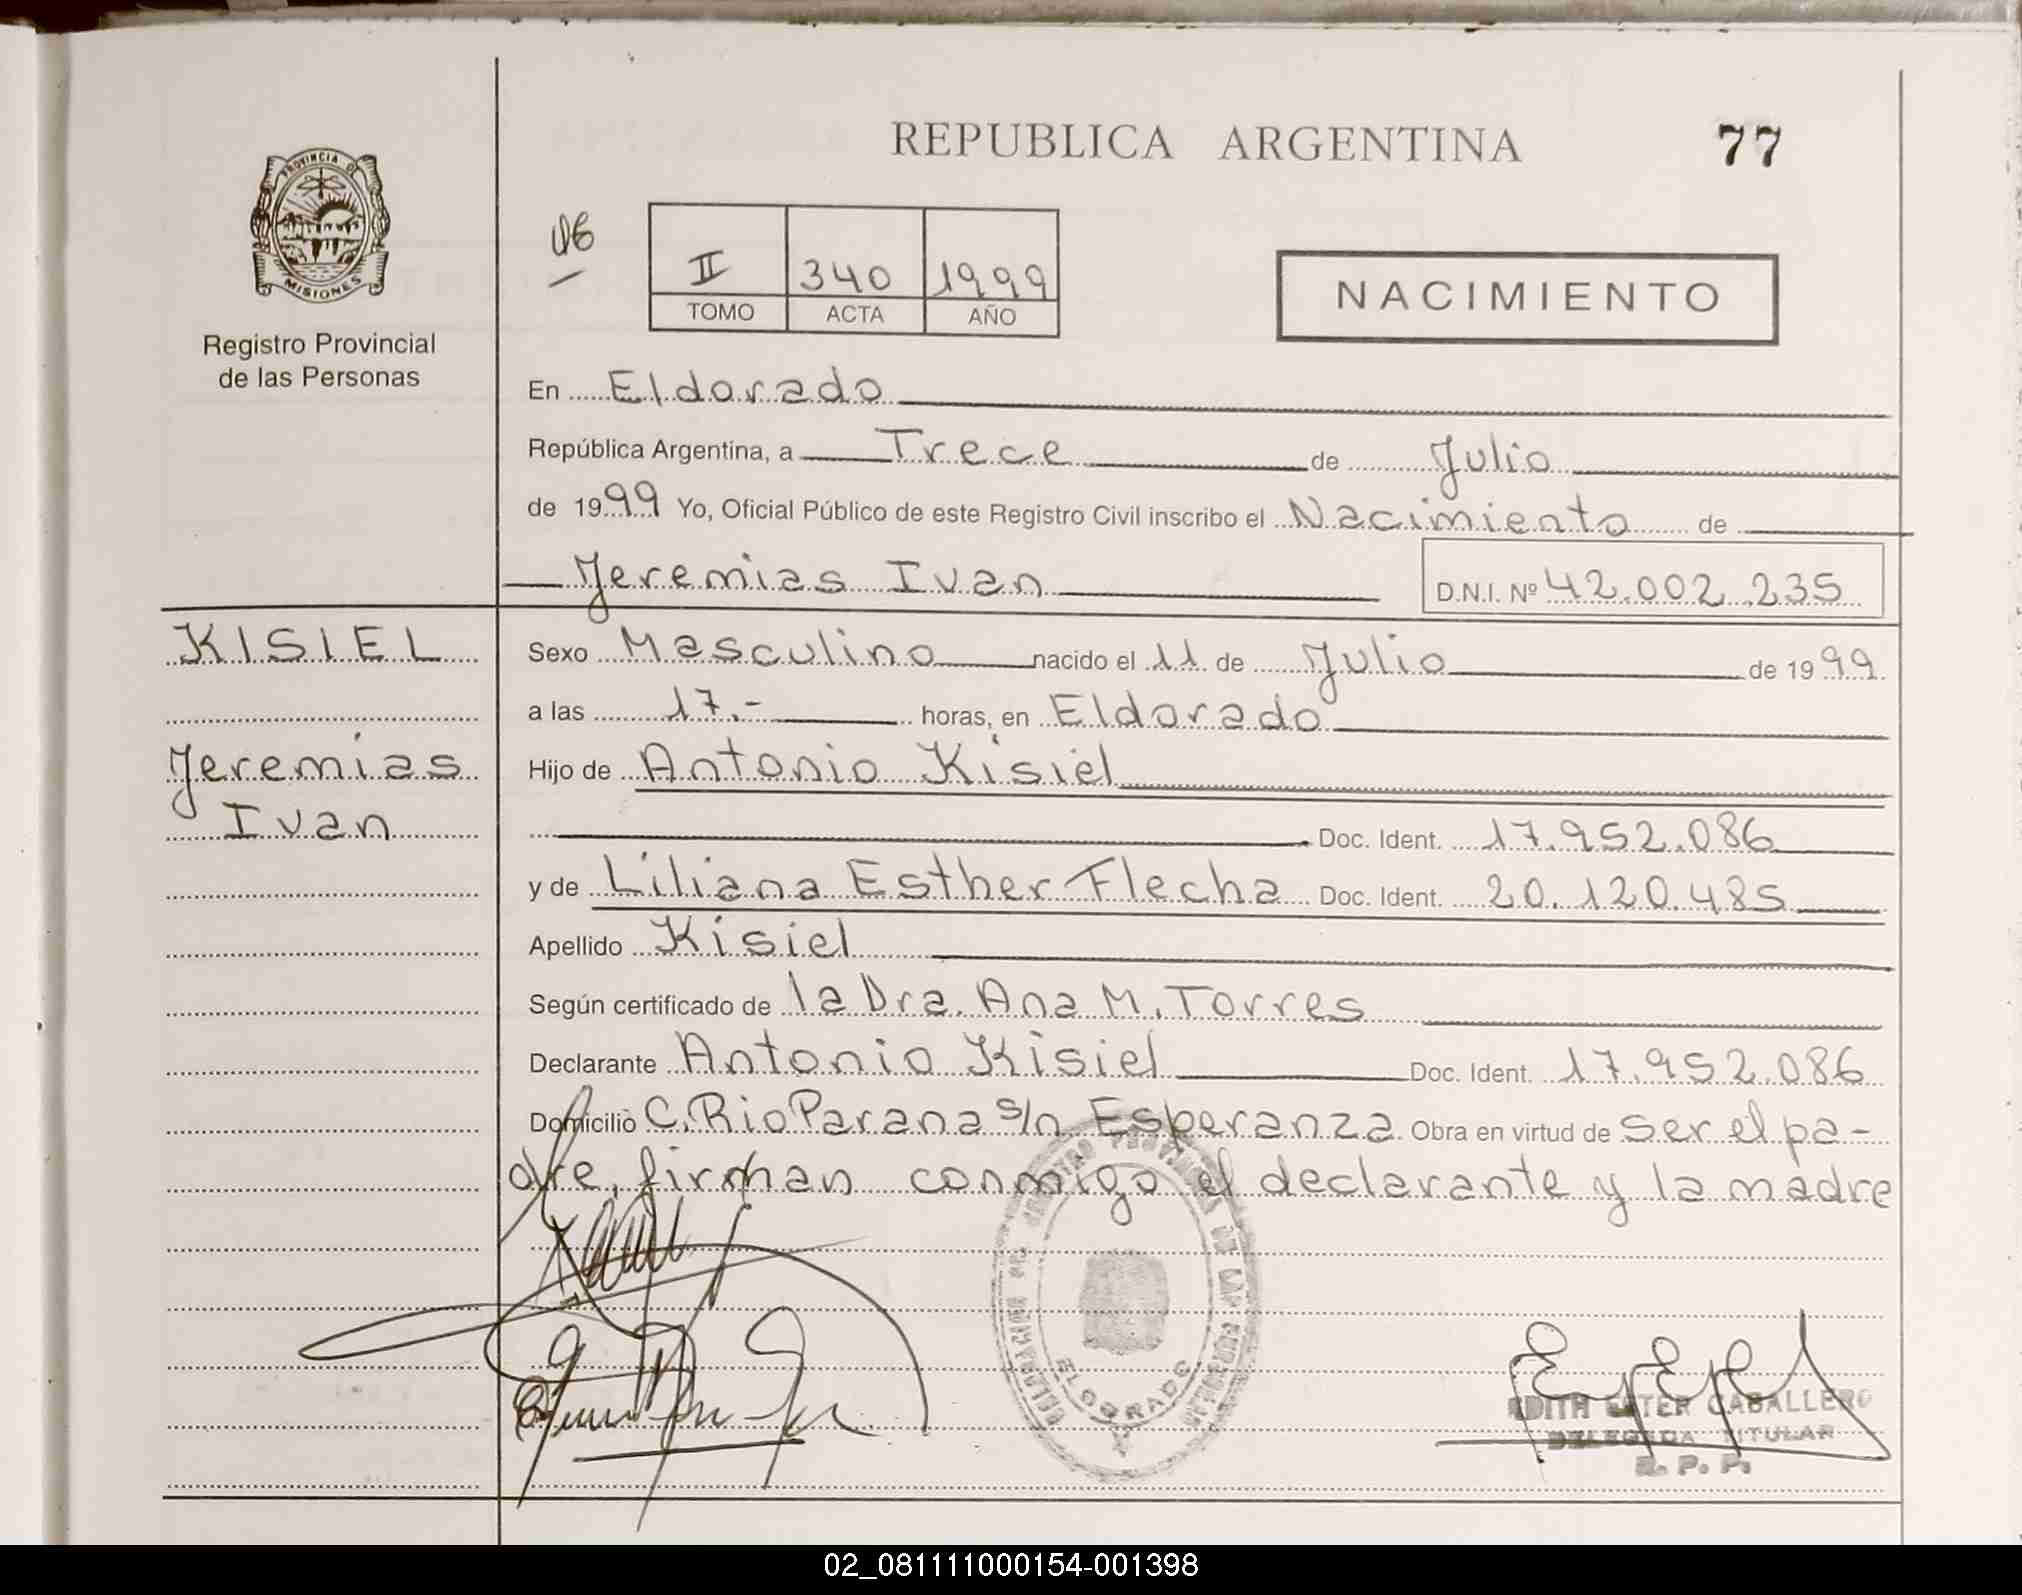 REPUBLICA ARGENTINA 77
PROVINCIA DE
MISIONES
Registro Provincial
de las Personas
II 340 1999
TOMO ACTA AÑO
NACIMIENTO
En Eldorado
República Argentina, a Trece de Julio
de 1999 Yo, Oficial Público de este Registro Civil inscribo el Nacimiento de
Jeremias Ivan D.N.I. Nº 42.002.235
KISIEL
Jeremias
Ivan
Sexo Masculino nacido el 11 de Julio de 1999
a las 17.- horas, en Eldorado
Hijo de Antonio Kisiel
Doc. Ident. 17.952.086
y de Liliana Esther Flecha Doc. Ident. 20.120.485
Apellido Kisiel
Según certificado de la Dra. Ana M. Torres
Declarante Antonio Kisiel Doc. Ident. 17.952.086
Domicilio C. Rio Parana s/n Esperanza Obra en virtud de ser el pa-
dre, firman conmigo el declarante y la madre
REGISTRO PROVINCIAL DE LAS PERSONAS
ELDORADO
EDITH ESTER CABALLERO
DELEGADA TITULAR
R. P. P.
02_081111000154-001398